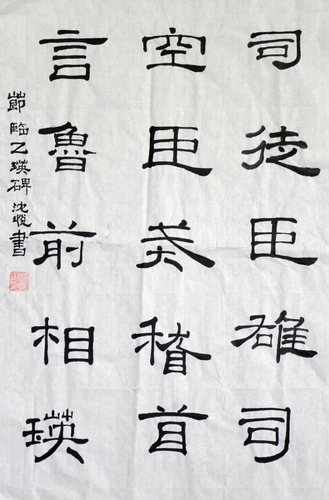 司徒臣雄司
空臣戒稽首
言魯前相瑛
節臨乙瑛碑沈悦書